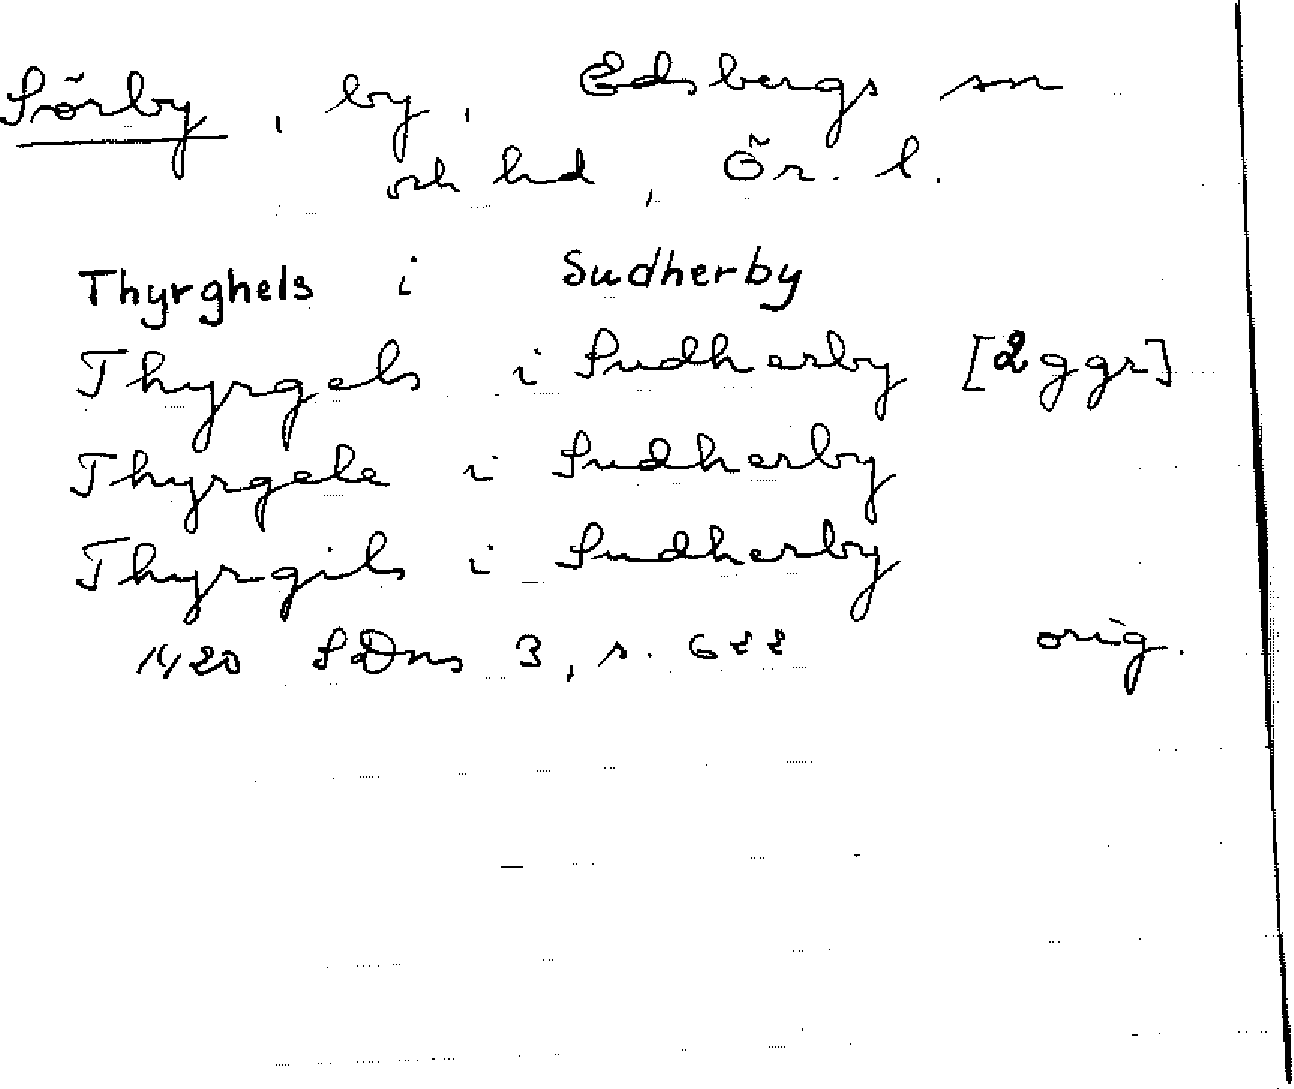 Sörby, by, Edsbergs sn
och hd, Ör. l.
Thyrghels i Sudherby
Thyrgels i Sudherby [2 ggr]
Thyrgele i Sudherby
Thyrgils i Sudherby
1420 SDns 3, s. 622 orig.